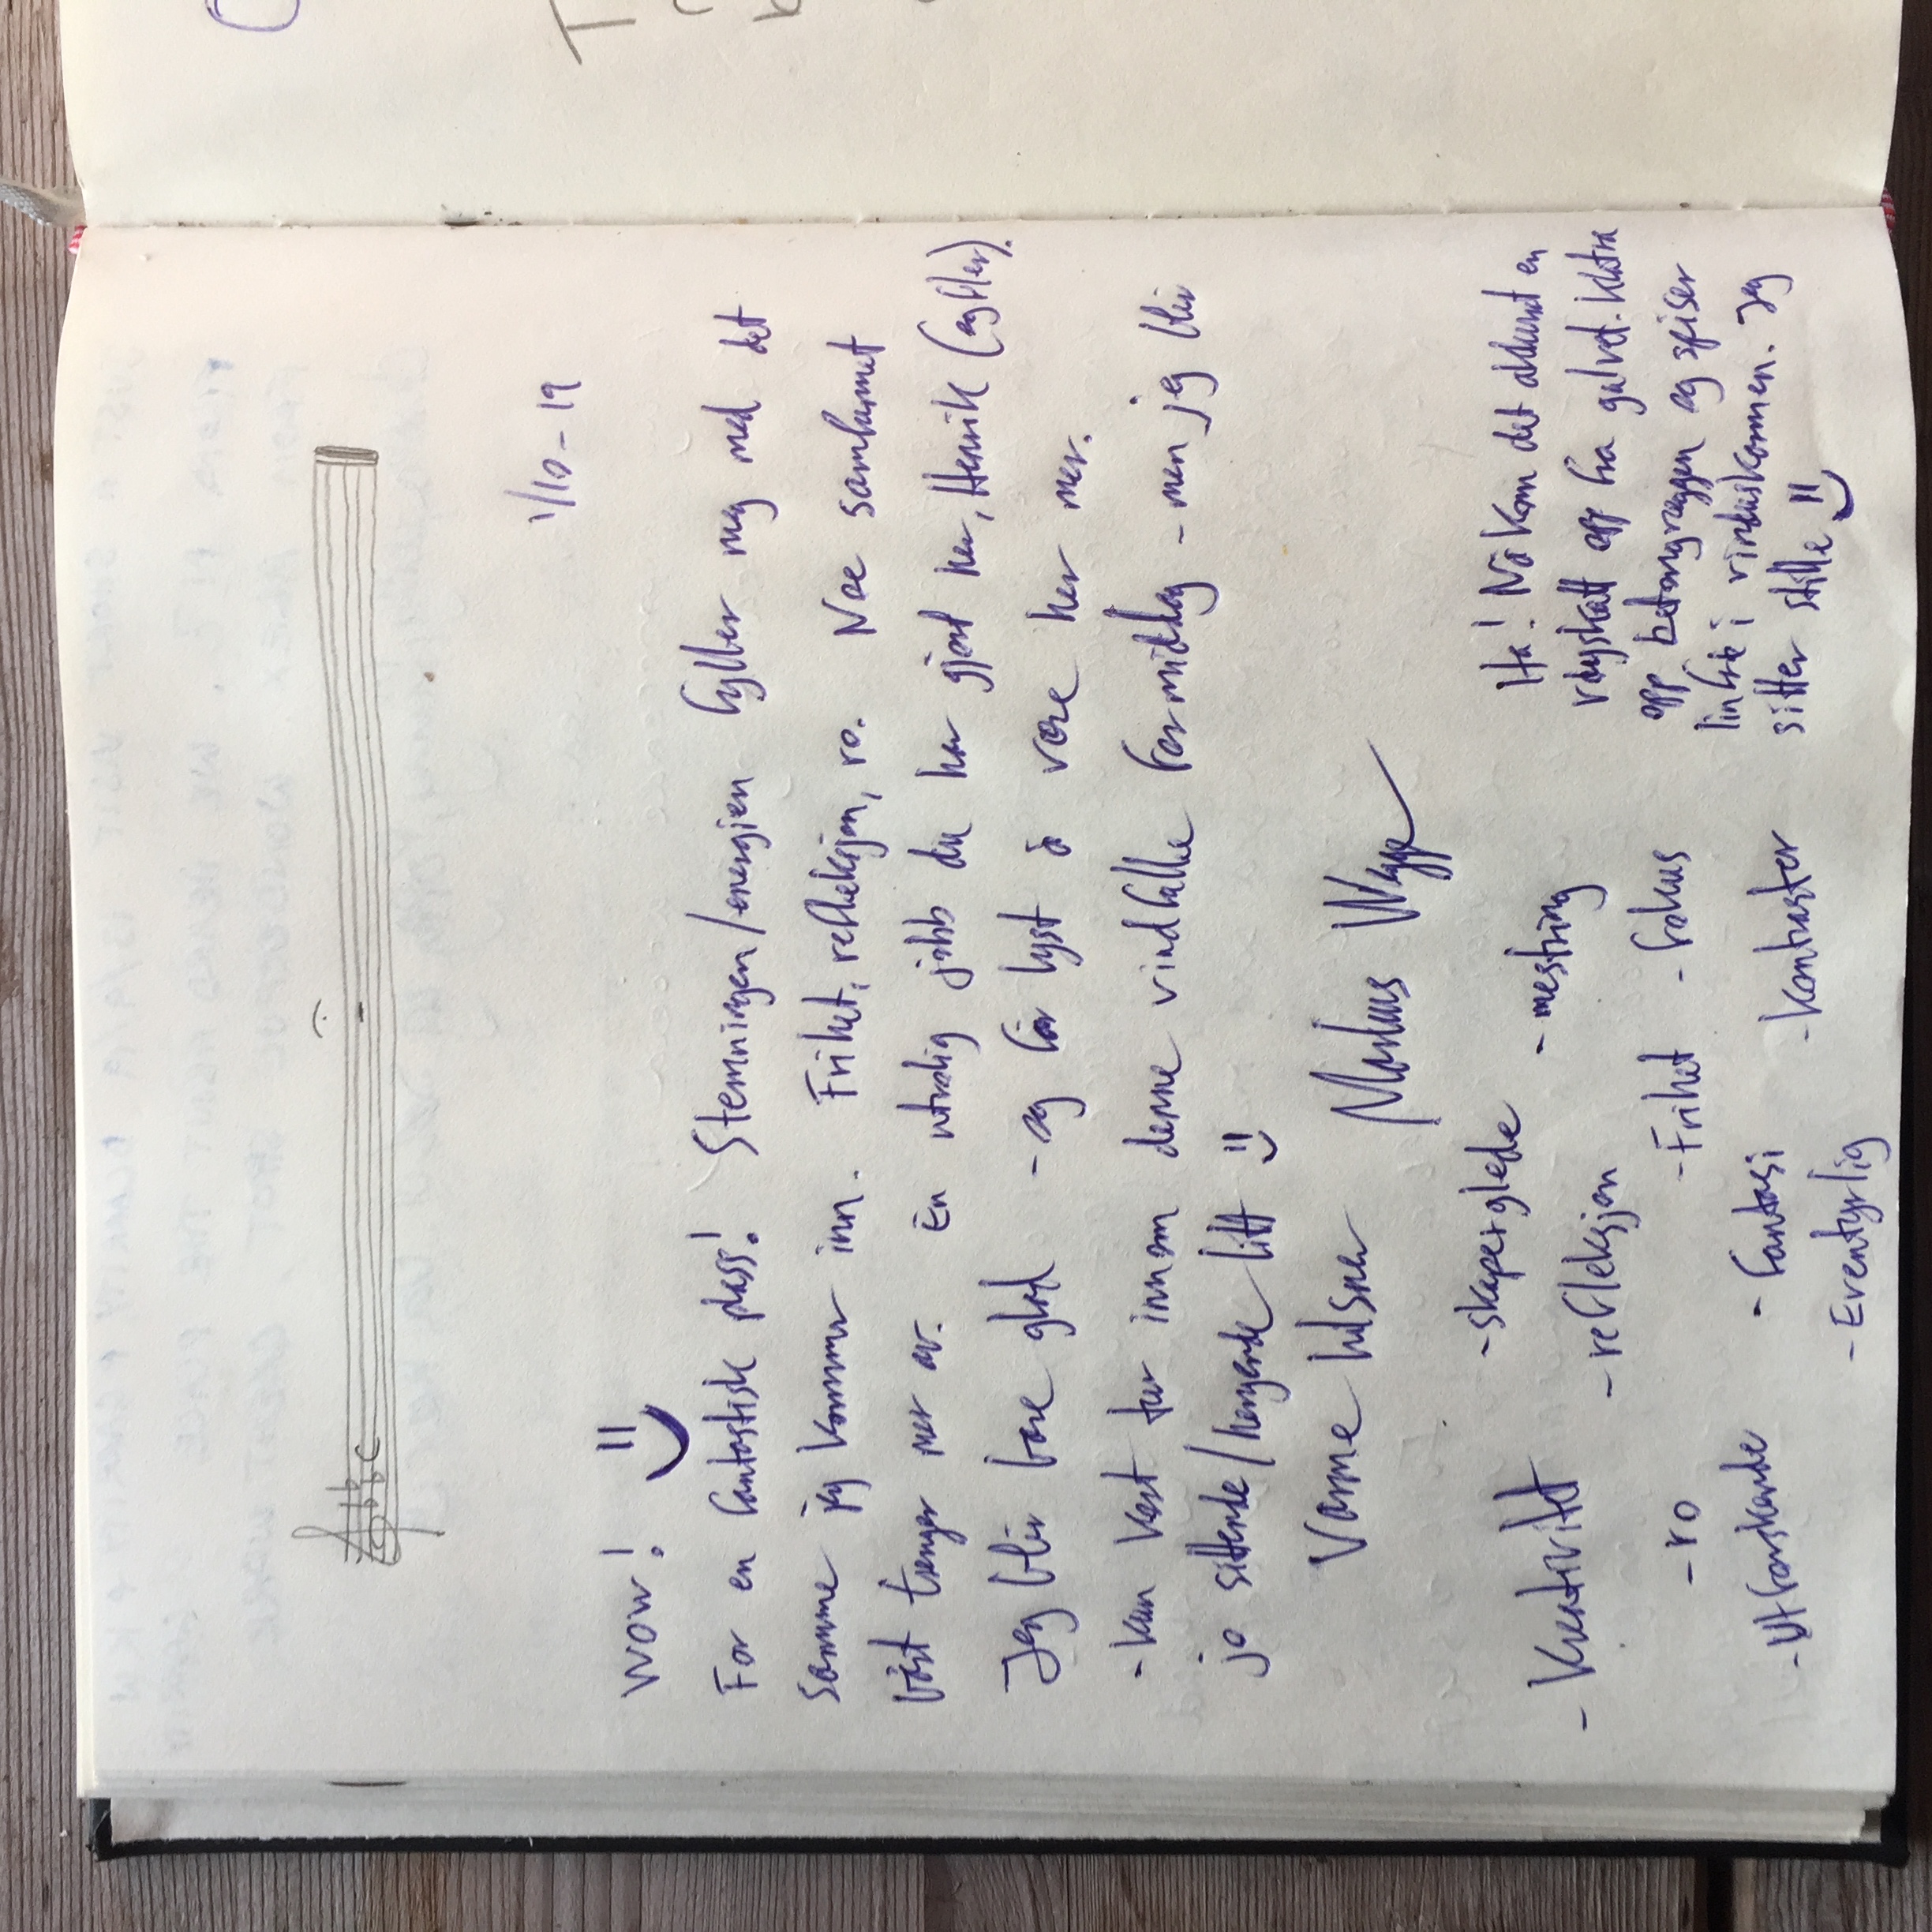 1/10-19
WOW!
For en fantastisk plass! Stemningen/energien fyller meg med det
samme jeg kommer inn. Frihet, refleksjon, ro. Noe samfunnet
vårt trenger mer av. En utrolig jobb du har gjort her, Henrik (og fler).
Jeg blir bare glad - og får lyst å være her mer.
- kun kost tur innom denne vindfulle formiddag - men jeg blir
jo sittende/hengende litt
Varme hilsner Markus Wagge
- Kreativitet
- skaperglede
- mestring
- refleksjon
- ro
- Frihet
- fokus
- Utforskende
- fantasi
- kontraster
- Eventyrlig
Ha! Nå kom det akkurat en
røyskatt opp fra gulvet. Klatra
opp betongveggen og spiser
linfrø i vinduskarmen. Jeg
sitter stille